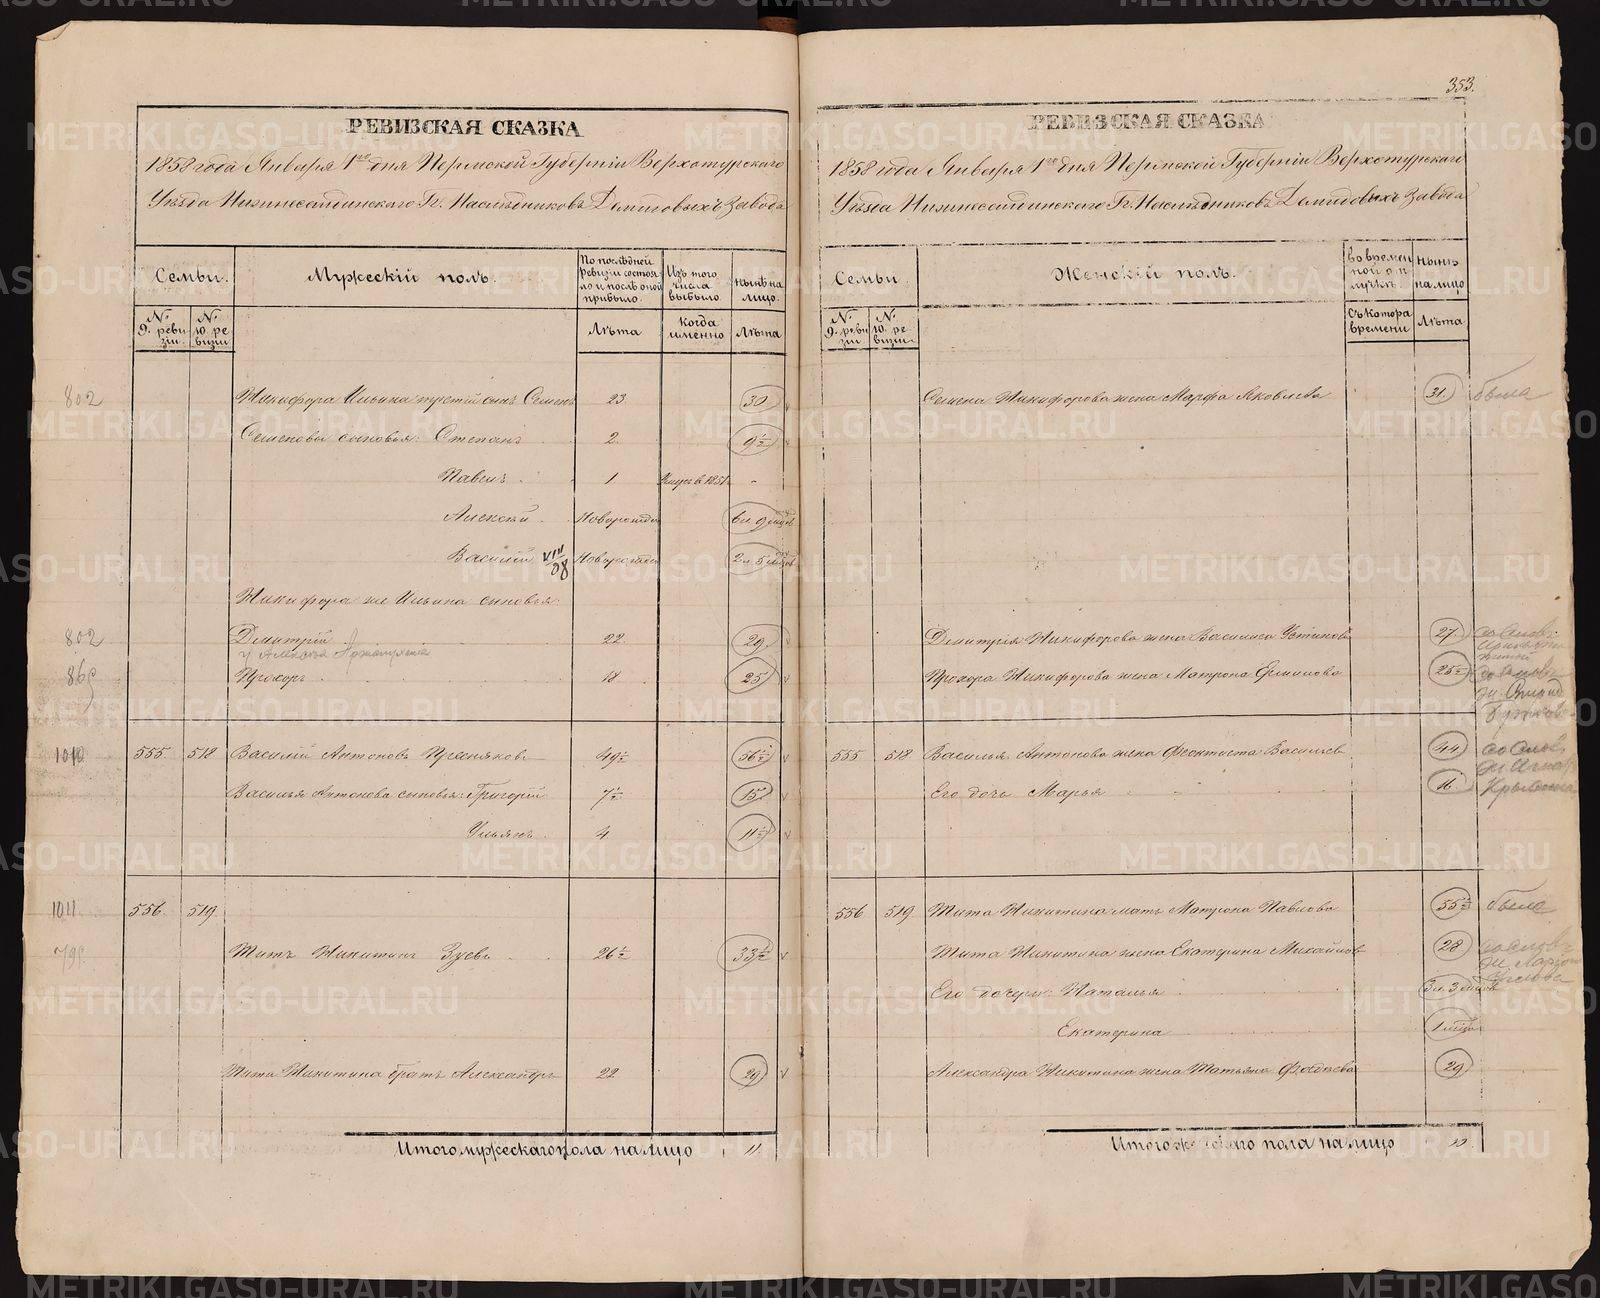 353.
РЕВИЗСКАЯ СКАЗКА
1858 года Января 1го дня Пермской Губерніи Верхотурскаго
Уѣзда Нижнесалдинскаго Гг. Наслѣдниковъ Демидовыхъ Завода
Семьи.
Мужескій полъ.
По послѣдней ревизіи состояло и послѣ оной прибыло.
Изъ того числа выбыло
нынѣ на лицо.
№ 9. ревизіи
№ 10. ревизіи
Лѣта
Когда именно
Лѣта
802 Никифора Ильина третій сынъ Семенъ 23 30
Семеновы сыновья: Степанъ 2. 9½
Павелъ 1 1851 -
Алексѣй Новорожде 6 л. 9 мцов
Василій VIII/08 Новорожден 2 л. 5 мцов
Никифора же Ильина сыновья:
802 Демитрій 22 29
у Алексѣя
Прохоръ 18 25
1010 555 518 Василій Антоновъ 49½ 56½
Василья Антонова сыновья: Григорій 7½ 15
Ульянъ 4 11½
1011 556 519
Титъ Никитинъ Зуевъ 26½ 33½
Тита Никитина братъ Александръ 22 29
Итого мужескаго пола на лицо 11
РЕВИЗСКАЯ СКАЗКА
1858 года Января 1го дня Пермской Губерніи Верхотурскаго
Уѣзда Нижнесалдинскаго Гг. Наслѣдниковъ Демидовыхъ Завода
Семьи
Женскій полъ.
Во временной отлучкѣ.
нынѣ на лицо
№ 9. ревизіи
№ 10. ревизіи
Съ котора времени
Лѣта
Семена Никифорова жена Марфа Яковлева 31. была
Демитрія Никифорова жена Василиса Устинова 27
Прохора Никифорова жена Матрона Ермилова 25½
555 518 Василья Антонова жена Феоктиста Васильев 44
Его дочь Марья 16
556 519 Тита Никитина мать Матрона Павлова 55½ была
Тита Никитина жена Екатерина Михайлов 28
Его дочери: Наталья 3 л. 3 мцов
Екатерина 1 мца
Александра Никитина жена Татьяна Фадѣева 29
Итого женскаго пола на лицо 10
METRIKI.GASO-URAL.RU